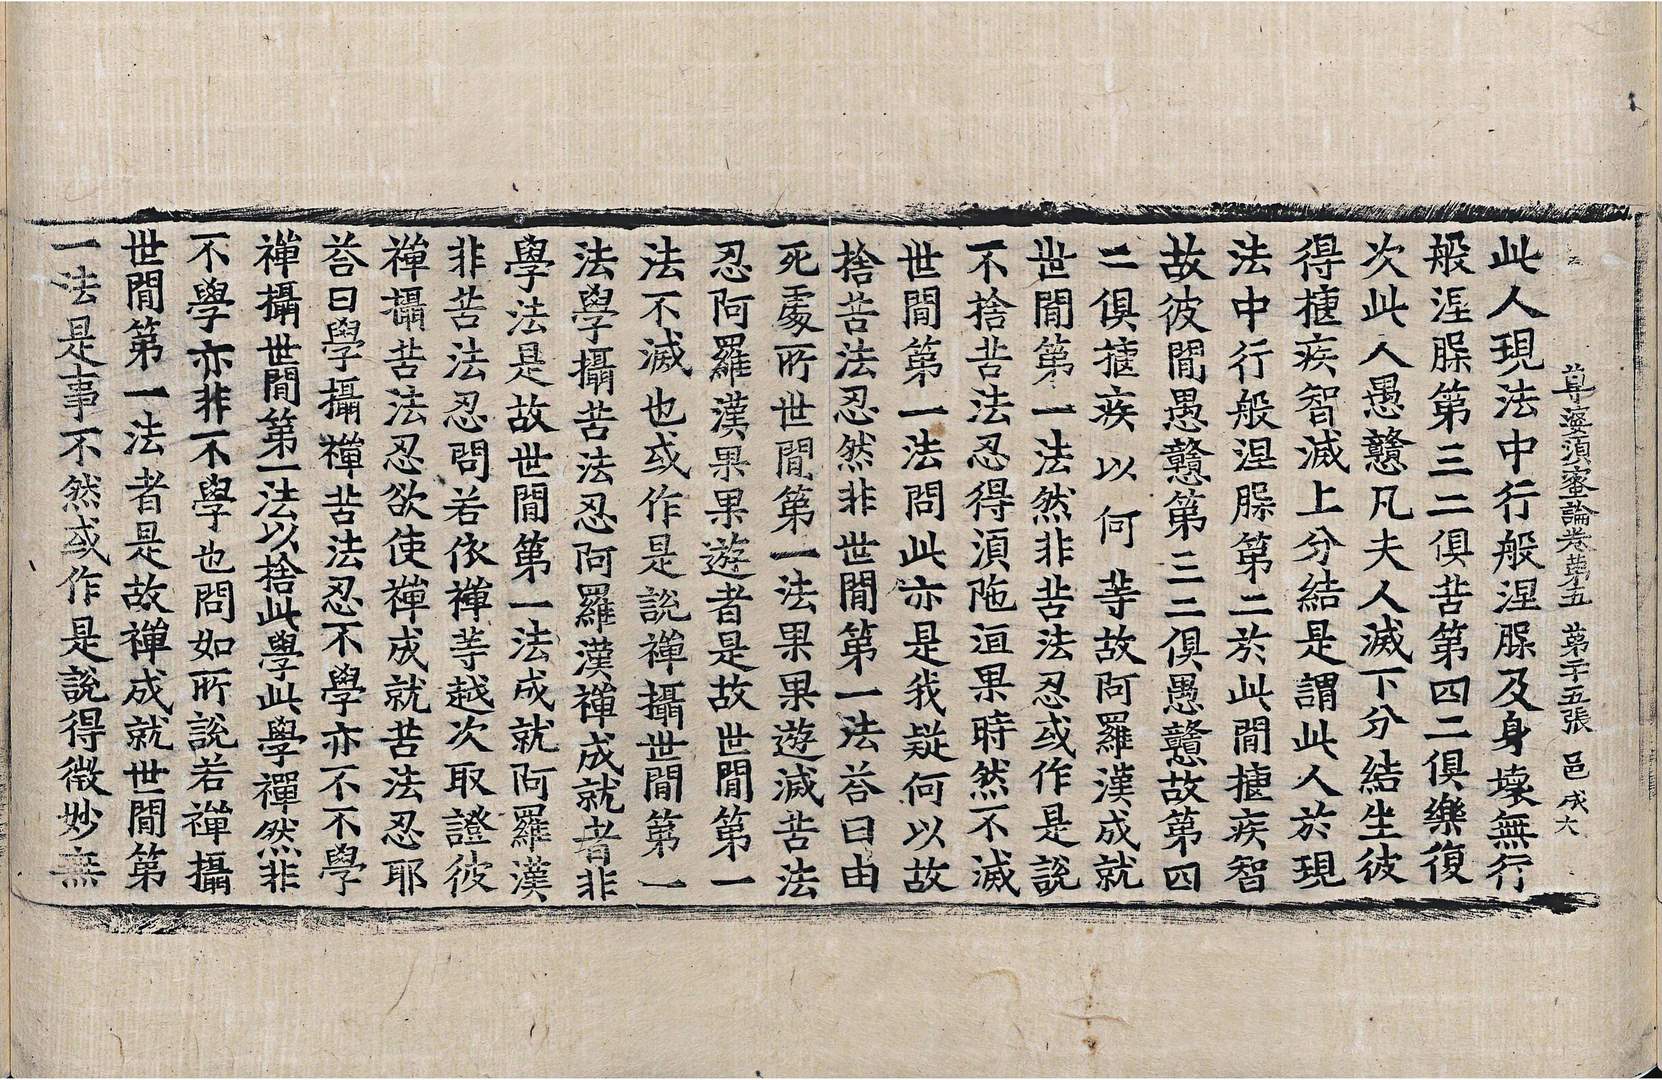 尊婆須蜜論卷第五 第二十五張 邑 成大
此人現法中行般涅槃及身壞無行
般涅槃第三二俱苦第四二俱樂復
次此人愚戇凡夫人滅下分結生彼
得揵疾智滅上分結是謂此人於現
法中行般涅槃第二於此閒揵疾智
故彼閒愚戇第三二俱愚戇故第四
二俱揵疾以何等故阿羅漢成就
世閒第一法然非苦法忍或作是說
不捨苦法忍得湏陁洹果時然不滅
世閒第一法問此亦是我疑何以故
捨苦法忍然非世閒第一法荅曰由
死處所世閒第一法果果遊滅苦法
忍阿羅漢果果遊者是故世閒第一
法不滅也或作是說禪攝世閒第一
法學攝苦法忍阿羅漢禪成就者非
學法是故世閒第一法成就阿羅漢
非苦法忍問若依禪等越次取證彼
禪攝苦法忍欲使禪成就苦法忍耶
荅曰學攝禪苦法忍不學亦不不學
禪攝世閒第一法以捨此學此學禪然非
不學亦非不學也問如所說若禪攝
世閒第一法者是故禪成就世閒第
一法是事不然或作是說得微妙無